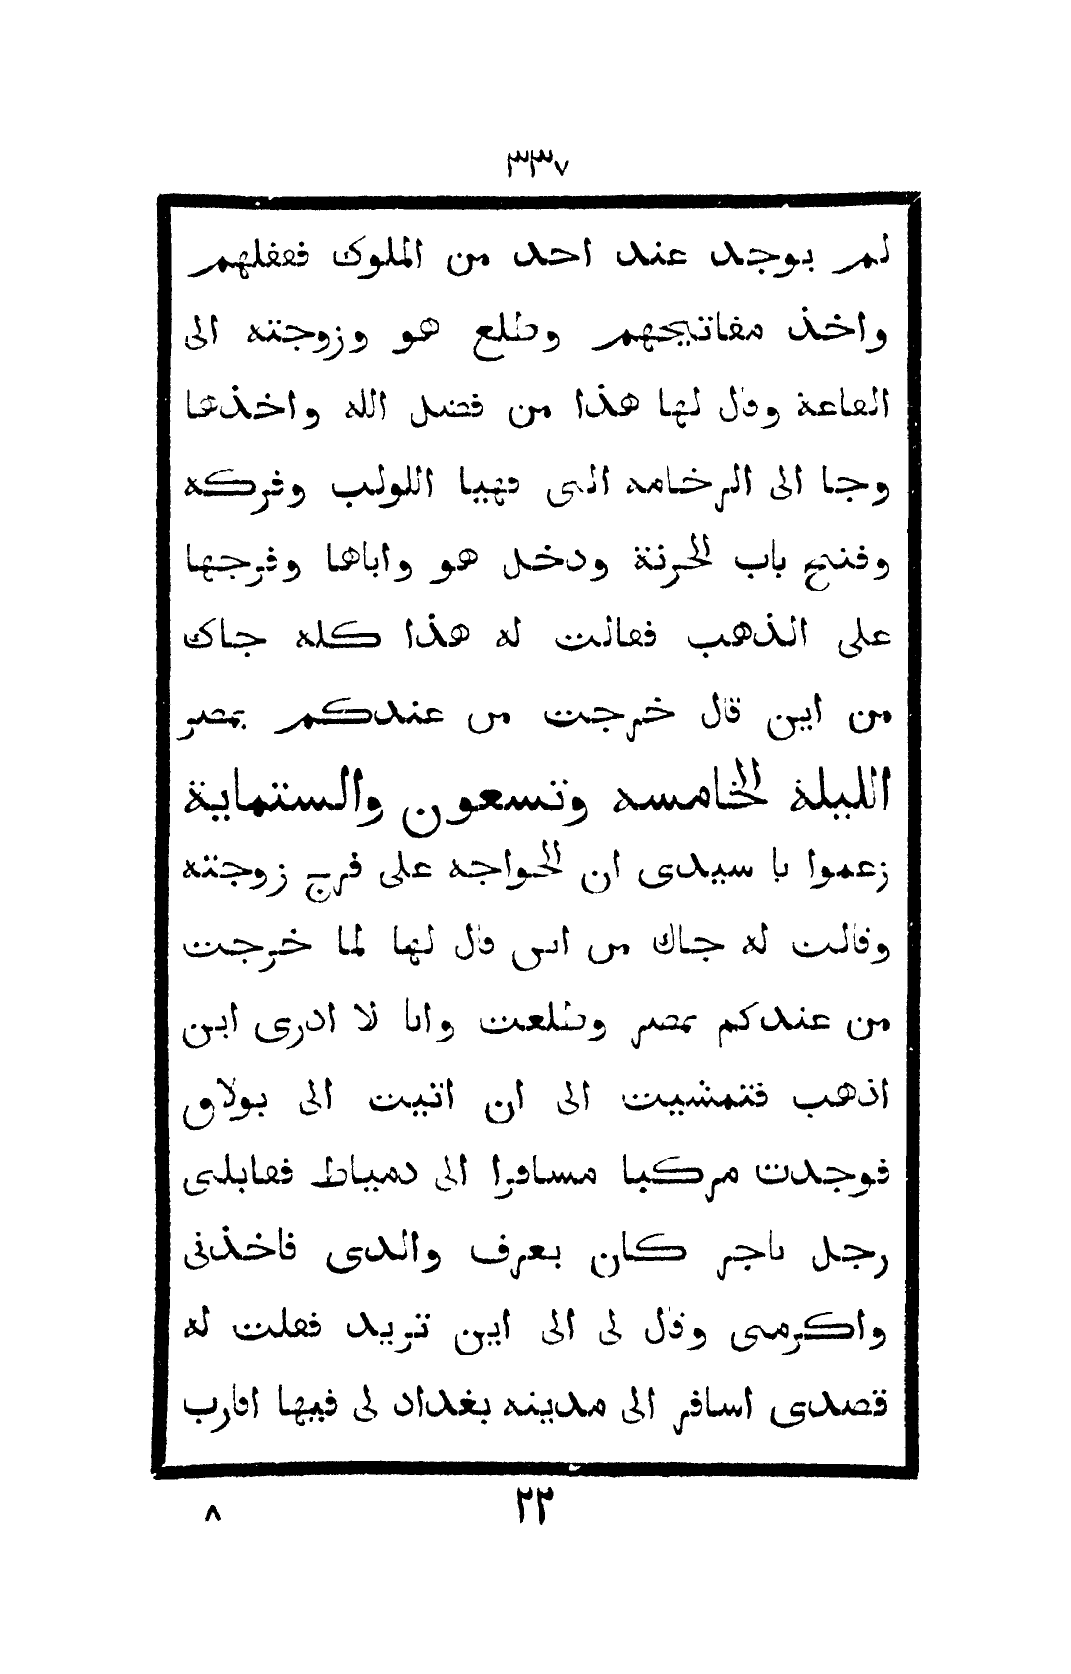 ٣٣٧
لم يوجد عند احد من الملوك فقفلهم
واخذ مفاتيحهم وطلع هو وزوجته الى
القاعة وقال لها هذا من فضل الله واخذها
وجا الى الرخامه التى فهيا اللولب وفركه
وفتح باب الخزنة ودخل هو واياها وفرجها
على الذهب فقالت له هذا كله جاك
من اين قال خرجت من عندكم بمصر
الليلة الخامسه وتسعون والستماية
زعموا يا سيدى ان الخواجه على فرج زوجته
وقالت له جاك من اين قال لها لما خرجت
من عندكم بمصر وطلعت وانا لا ادرى اين
اذهب فتمشيت الى ان اتيت الى بولاق
فوجدت مركبا مسافرا الى دمياط فقابلنى
رجل تاجر كان يعرف والدى فاخذنى
واكرمنى وقال لى الى اين تريد فقلت له
قصدى اسافر الى مدينه بغداد لى فيها اقارب
٢٢
٨